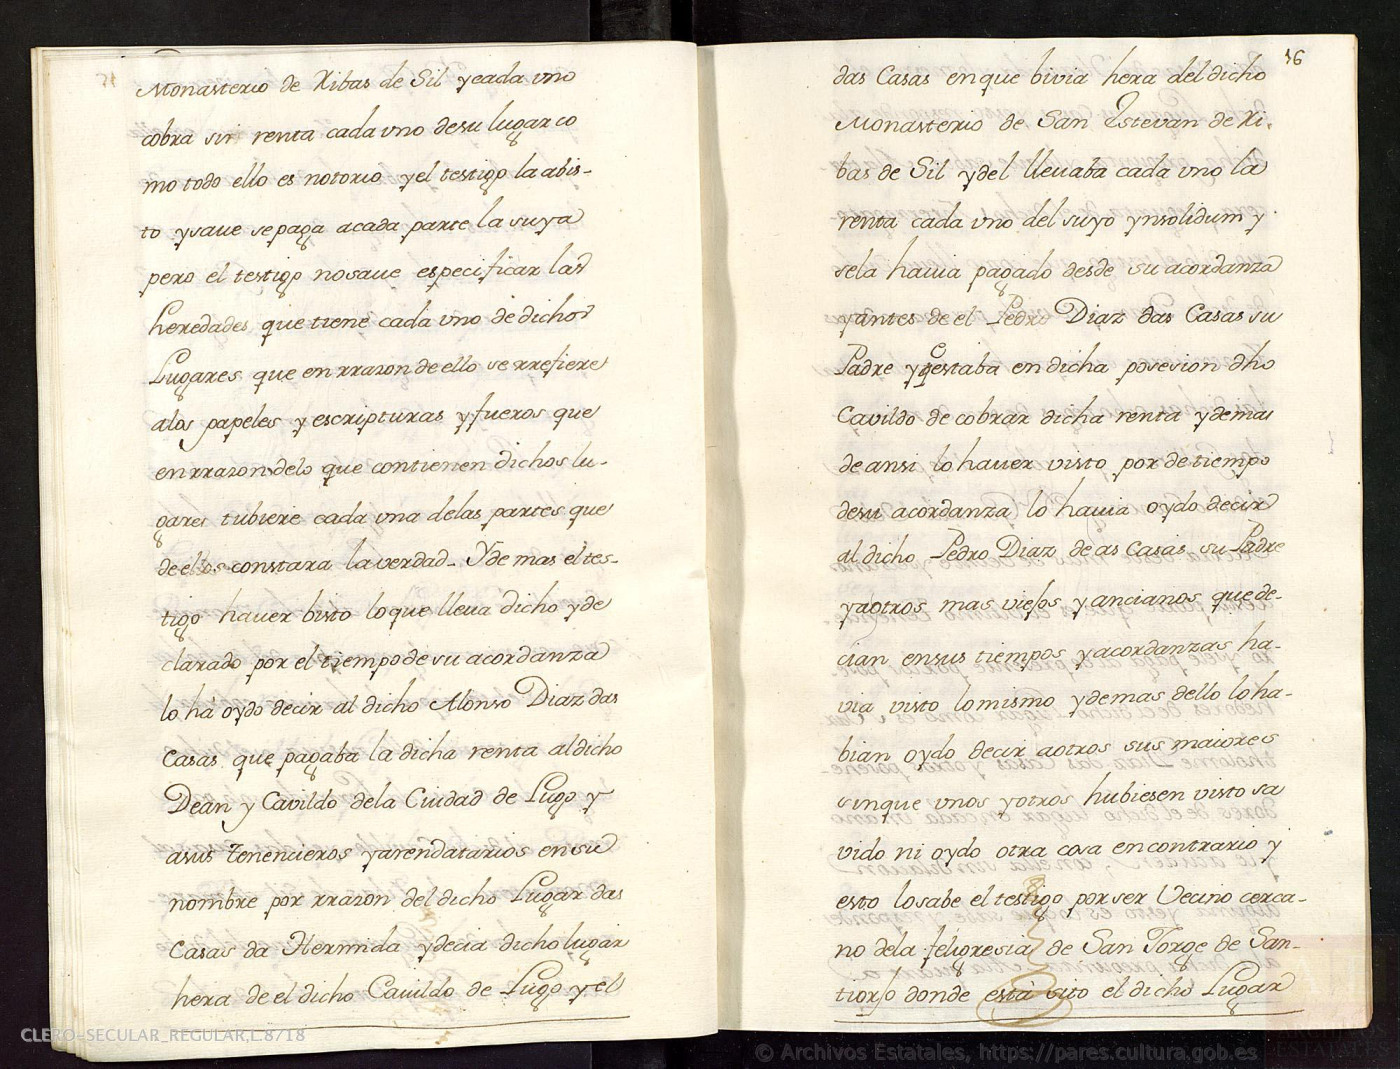 Monasterio de Ribas de Sil y cada vno
cobra sin renta cada vno de su lugar co
mo todo ello es notorio y el testigo la abis-
to y saue se paga acada parte la suya
pero el testigo no saue especificar las
heredades que tiene cada vno de dichos
Lugares que en rrazon de ello se rrefiere
alos papeles y escripturas y fueros que
en rrazon delo que contienen dichos lu-
gares tubiere cada vna delas partes que
de ellos constara la verdad. Y de mas el tes-
tigo hauer bisto lo que lleua dicho y de
clarado por el tiempo de su acordanza
lo ha oydo decir al dicho Alonso Diaz das
Casas que pagaba la dicha renta al dicho
Dean y Cavildo dela Ciudad de Lugo y
asus tenencieros y arendatarios en su
nombre por rrazon del dicho Lugar das
Casas da Hermida y decia dicho lugar
hera de el dicho Cauildo de Lugo y el
36
das Casas en que bivia hera del dicho
Monasterio de San Estevan de Ri-
bas de Sil y del lleuaba cada vno la
renta cada vno del suyo ynsolidum y
sela hauia pagado desde su acordanza
y antes de el Pedro Diaz das Casas su
Padre y q estaba en dicha posesion dho
Cavildo de cobrar dicha renta y demas
de ansi lo hauer visto por de tiempo
desu acordanza lo hauia oydo decir
al dicho Pedro Diaz de as Casas su Padre
y aotros mas viejos y ancianos que de-
cian ensus tiempos y acordanzas ha-
via visto lo mismo y demas dello lo ha-
bian oydo decir aotros sus maiores
sin que vnos y otros hubiesen visto sa
vido ni oydo otra cosa en contrario y
esto lo sabe el testigo por ser Vecino cerca-
no dela feligresia de San Jorge de San-
tiorjo donde está sito el dicho Lugar
CLERO-SECULAR_REGULAR,L.8718
© Archivos Estatales, https://pares.cultura.gob.es
ARCHIVOS
ESTATALES